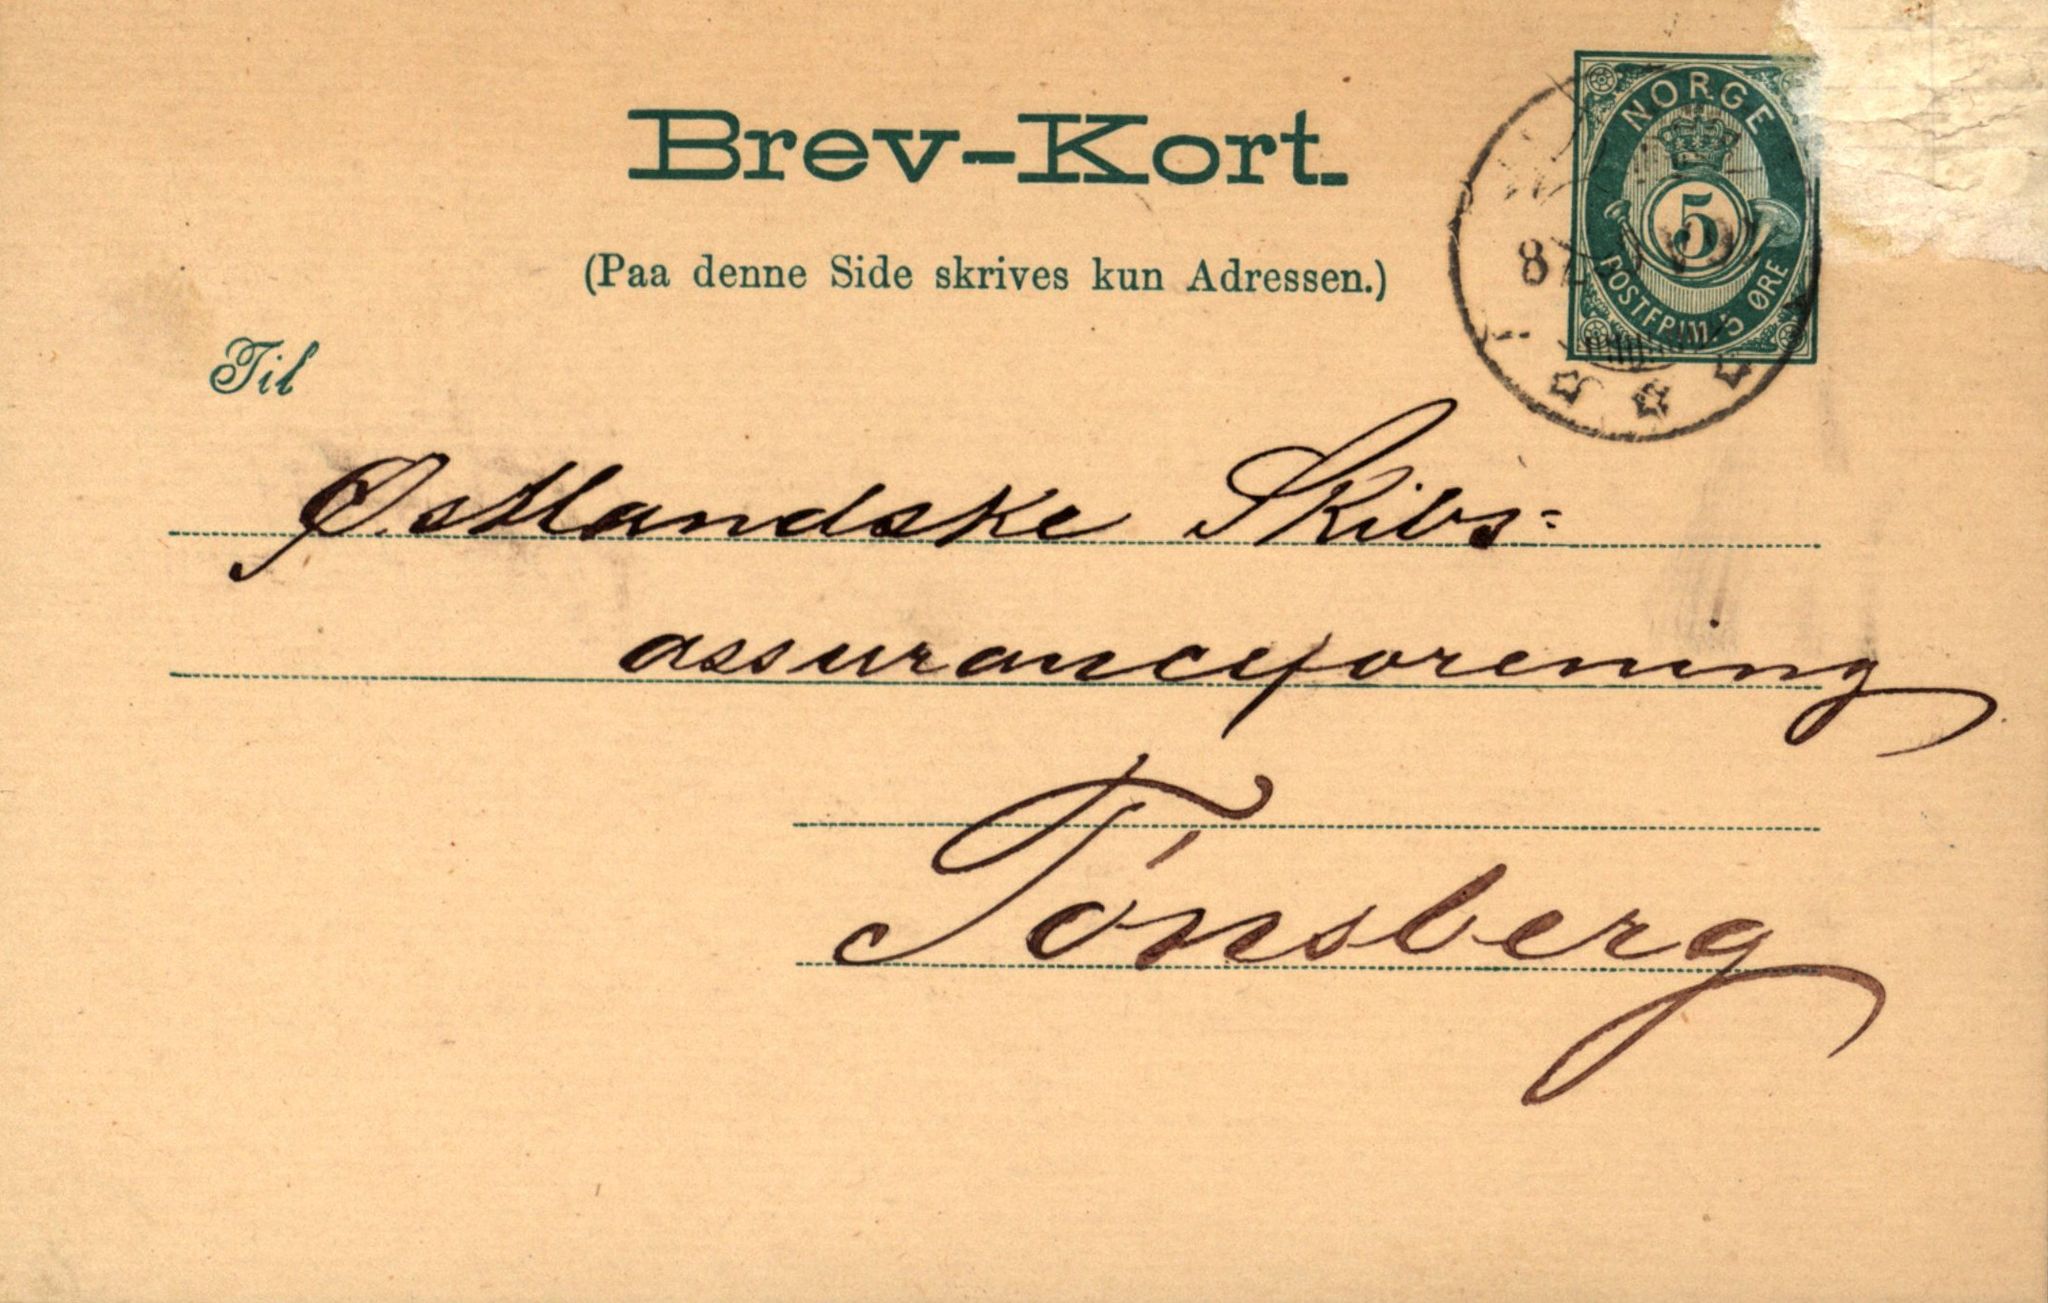 Brev-Kort.
NORGE
5
POSTFRIM. 5 ØRE
(Paa denne Side skrives kun Adressen.)
Til
Østlandske Skibs=
assuranceforening
Tónsberg